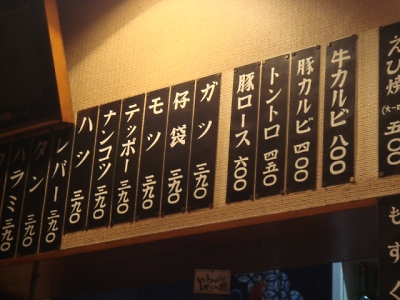 えび焼 五〇〇
もずく
牛カルビ 八〇〇
豚カルビ 四〇〇
トントロ 四五〇
豚ロース 六〇〇
ガツ 三九〇
仔袋 三九〇
モツ 三九〇
テッポー 三九〇
ナンコツ 三九〇
ハツ 三九〇
レバー 三九〇
タン 三九〇
ハラミ 三九〇